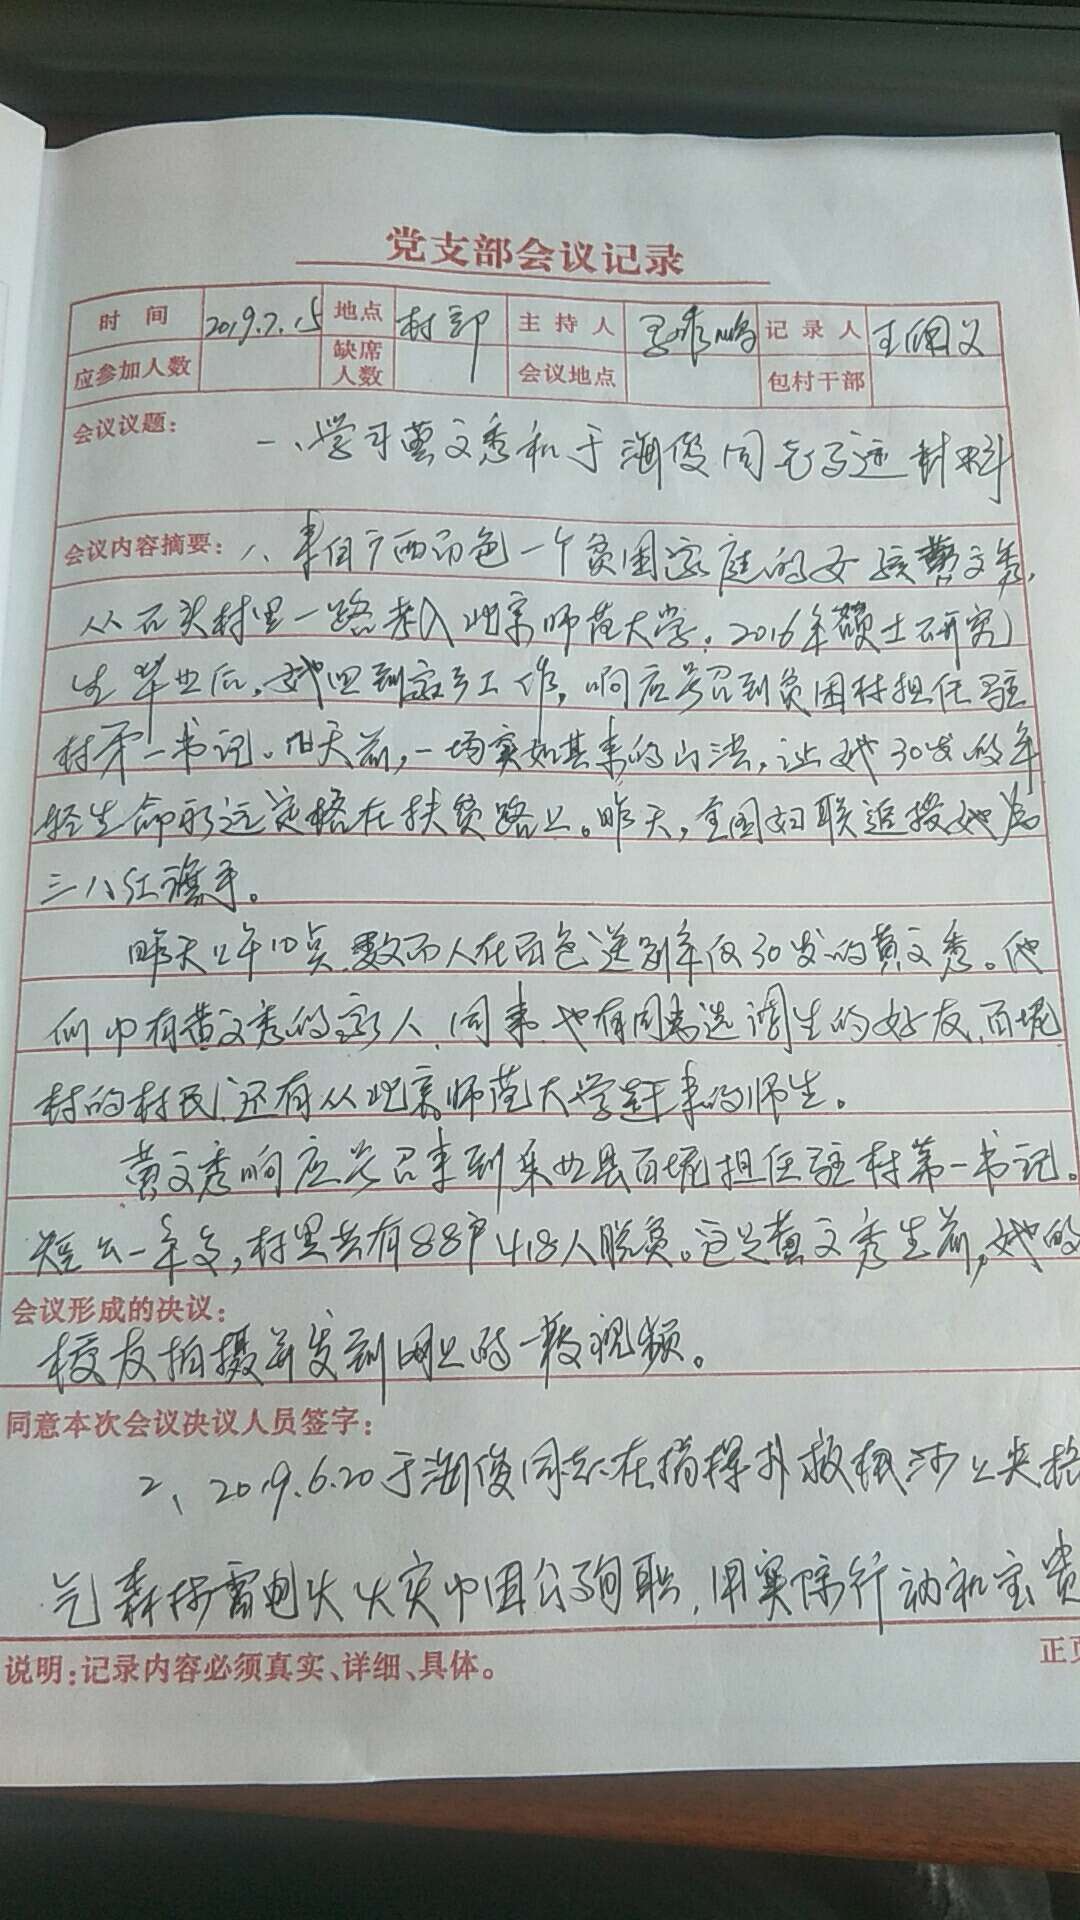 党支部会议记录
时间 2019.7.15 地点 村部 主持人 记录人 王
应参加人数 缺席人数 会议地点 包村干部
会议议题： 一、学习黄文秀和于海俊同志事迹材料
会议内容摘要：1、来自广西百色一个贫困家庭的女孩黄文秀，
从石头村里一路考入北京师范大学，2016年硕士研究
生毕业后，她回到家乡工作，响应号召到贫困村担任驻
村第一书记。几天前，一场突如其来的山洪，让她30岁的年
轻生命永远定格在扶贫路上。昨天，全国妇联追授她为
三八红旗手。
昨天上午10点，数百人在百色送别年仅30岁的黄文秀。他
们中有黄文秀的家人、同事也有同为选调生的好友、百坭
村的村民，还有从北京师范大学赶来的师生。
黄文秀响应号召来到乐业县百坭担任驻村第一书记。
短短一年多，村里共有88户418人脱贫。这是黄文秀生前，她的
会议形成的决议：
校友拍摄并发到网上的一段视频。
同意本次会议决议人员签字：
2、2019.6.20于海俊同志在指挥扑救根河上央格
气森林雷电火火灾中因公殉职，用实际行动和宝贵
说明：记录内容必须真实、详细、具体。
正页